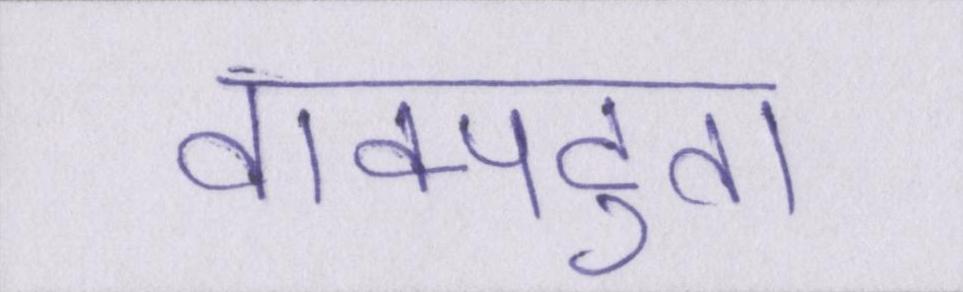 वाक्पटुता